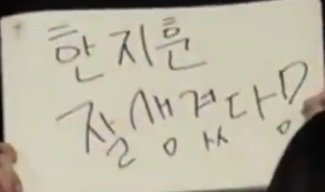 한지훈
잘생겼다!